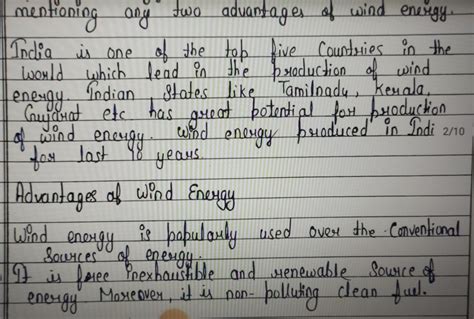 mentioning any two advantages of wind energy.
India is one of the top five Countries in the
world which lead in the production of wind
energy. Indian States like Tamilnadu, Kerala,
Gujarat etc has great potential for production
of wind energy. Wind energy produced in Indi 2/10
for last 18 years.
Advantages of Wind Energy
Wind energy is popularly used over the Conventional
Sources of energy.
It is free inexhaustible and renewable Source of
energy Moreover, it is non-polluting clean fuel.